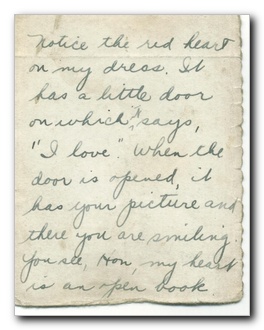 notice the red heart
on my dress. It
has a little door
on which, it says,
"I love". When the
door is opened, it
has your picture and
there you are smiling.
You see, Hon, my heart
is an open book